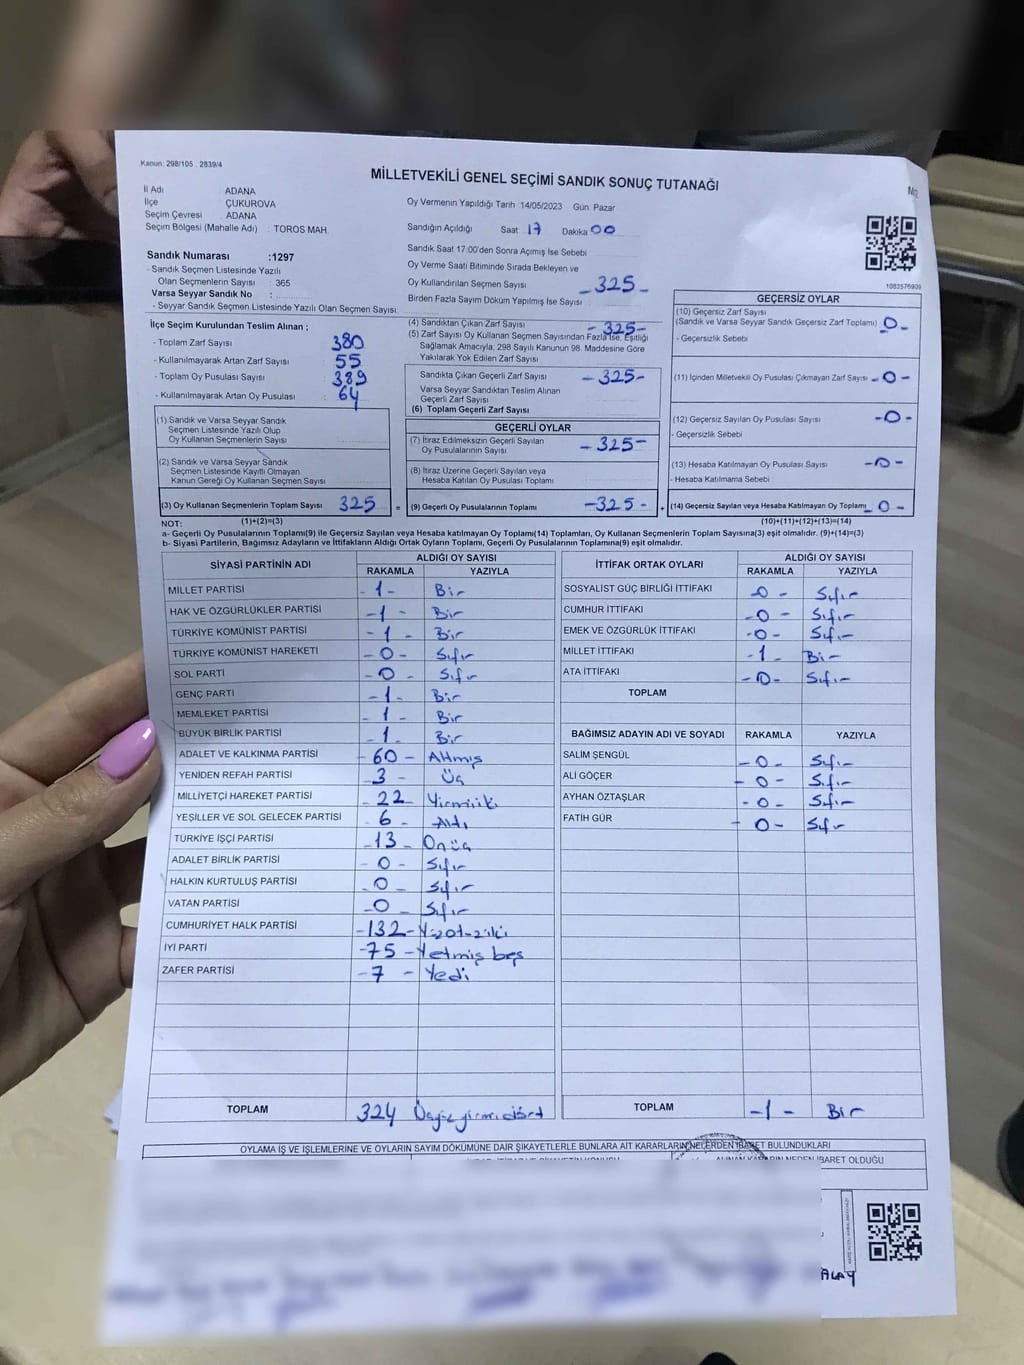 Kanun: 298/105 , 2839/4
MİLLETVEKİLİ GENEL SEÇİMİ SANDIK SONUÇ TUTANAĞI
İl Adı : ADANA
İlçe : ÇUKUROVA
Seçim Çevresi : ADANA
Seçim Bölgesi (Mahalle Adı) : TOROS MAH.
Oy Vermenin Yapıldığı Tarih 14/05/2023 Gün Pazar
Sandığın Açıldığı Saat 17 Dakika 00
Sandık Saat 17:00'den Sonra Açımış İse Sebebi
Oy Verme Saati Bitiminde Sırada Bekleyen ve
Oy Kullandırılan Seçmen Sayısı - 325 -
Birden Fazla Sayım Döküm Yapılmış İse Sayısı
Sandık Numarası :1297
- Sandık Seçmen Listesinde Yazılı
Olan Seçmenlerin Sayısı : 365
Varsa Seyyar Sandık No :
- Seyyar Sandık Seçmen Listesinde Yazılı Olan Seçmen Sayısı:
1083576909
İlçe Seçim Kurulundan Teslim Alınan ;
- Toplam Zarf Sayısı : 380
- Kullanılmayarak Artan Zarf Sayısı : 55
- Toplam Oy Pusulası Sayısı : 389
- Kullanılmayarak Artan Oy Pusulası : 64
(1) Sandık ve Varsa Seyyar Sandık
Seçmen Listesinde Yazılı Olup
Oy Kullanan Seçmenlerin Sayısı
(2) Sandık ve Varsa Seyyar Sandık
Seçmen Listesinde Kayıtlı Olmayan
Kanun Gereği Oy Kullanan Seçmen Sayısı
(3) Oy Kullanan Seçmenlerin Toplam Sayısı 325 =
(1)+(2)=(3)
(4) Sandıktan Çıkan Zarf Sayısı - 325 -
(5) Zarf Sayısı Oy Kullanan Seçmen Sayısından Fazla İse, Eşitliği
Sağlamak Amacıyla, 298 Sayılı Kanunun 98. Maddesine Göre
Yakılarak Yok Edilen Zarf Sayısı
Sandıkta Çıkan Geçerli Zarf Sayısı - 325 -
Varsa Seyyar Sandıktan Teslim Alınan
Geçerli Zarf Sayısı
(6) Toplam Geçerli Zarf Sayısı
GEÇERLİ OYLAR
(7) İtiraz Edilmeksizin Geçerli Sayılan
Oy Pusulalarının Sayısı - 325 -
(8) İtiraz Üzerine Geçerli Sayılan veya
Hesaba Katılan Oy Pusulası Toplamı
(9) Geçerli Oy Pusulalarının Toplamı - 325 - +
GEÇERSİZ OYLAR
(10) Geçersiz Zarf Sayısı
(Sandık ve Varsa Seyyar Sandık Geçersiz Zarf Toplamı) 0 -
- Geçersizlik Sebebi
(11) İçinden Milletvekili Oy Pusulası Çıkmayan Zarf Sayısı - 0 -
(12) Geçersiz Sayılan Oy Pusulası Sayısı - 0 -
- Geçersizlik Sebebi
(13) Hesaba Katılmayan Oy Pusulası Sayısı - 0 -
- Hesaba Katılmama Sebebi
(14) Geçersiz Sayılan veya Hesaba Katılmayan Oy Toplamı - 0 -
(10)+(11)+(12)+(13)=(14)
NOT:
a- Geçerli Oy Pusulalarının Toplamı(9) ile Geçersiz Sayılan veya Hesaba katılmayan Oy Toplamı(14) Toplamları, Oy Kullanan Seçmenlerin Toplam Sayısına(3) eşit olmalıdır. (9)+(14)=(3)
b- Siyasi Partilerin, Bağımsız Adayların ve İttifakların Aldığı Ortak Oyların Toplamı, Geçerli Oy Pusulalarının Toplamına(9) eşit olmalıdır.
SİYASİ PARTİNİN ADI ALDIĞI OY SAYISI
RAKAMLA YAZIYLA
MİLLET PARTİSİ - 1 - Bir
HAK VE ÖZGÜRLÜKLER PARTİSİ - 1 - Bir
TÜRKİYE KOMÜNİST PARTİSİ - 1 - Bir
TÜRKİYE KOMÜNİST HAREKETİ - 0 - Sıfır
SOL PARTİ - 0 - Sıfır
GENÇ PARTİ - 1 - Bir
MEMLEKET PARTİSİ - 1 - Bir
BÜYÜK BİRLİK PARTİSİ - 1 - Bir
ADALET VE KALKINMA PARTİSİ - 60 - Altmış
YENİDEN REFAH PARTİSİ - 3 - Üç
MİLLİYETÇİ HAREKET PARTİSİ - 22 - Yirmiiki
YEŞİLLER VE SOL GELECEK PARTİSİ - 6 - Altı
TÜRKİYE İŞÇİ PARTİSİ - 13 - Onüç
ADALET BİRLİK PARTİSİ - 0 - Sıfır
HALKIN KURTULUŞ PARTİSİ - 0 - Sıfır
VATAN PARTİSİ - 0 - Sıfır
CUMHURİYET HALK PARTİSİ - 132 -
İYİ PARTİ - 75 - Yetmiş beş
ZAFER PARTİSİ - 7 - Yedi
TOPLAM 324 Üçyüzyirmidört
İTTİFAK ORTAK OYLARI ALDIĞI OY SAYISI
RAKAMLA YAZIYLA
SOSYALİST GÜÇ BİRLİĞİ İTTİFAKI - 0 - Sıfır
CUMHUR İTTİFAKI - 0 - Sıfır
EMEK VE ÖZGÜRLÜK İTTİFAKI - 0 - Sıfır
MİLLET İTTİFAKI - 1 - Bir
ATA İTTİFAKI - 0 - Sıfır
TOPLAM
BAĞIMSIZ ADAYIN ADI VE SOYADI RAKAMLA YAZIYLA
SALİM ŞENGÜL - 0 - Sıfır
ALİ GÖÇER - 0 - Sıfır
AYHAN ÖZTAŞLAR - 0 - Sıfır
FATİH GÜR - 0 - Sıfır
TOPLAM - 1 - Bir
OYLAMA İŞ VE İŞLEMLERİNE VE OYLARIN SAYIM DÖKÜMÜNE DAİR ŞİKAYETLERLE BUNLARA AİT KARARLARIN NELERDEN İBARET BULUNDUKLARI
ALINAN KARARIN NEDEN İBARET OLDUĞU
ALAY